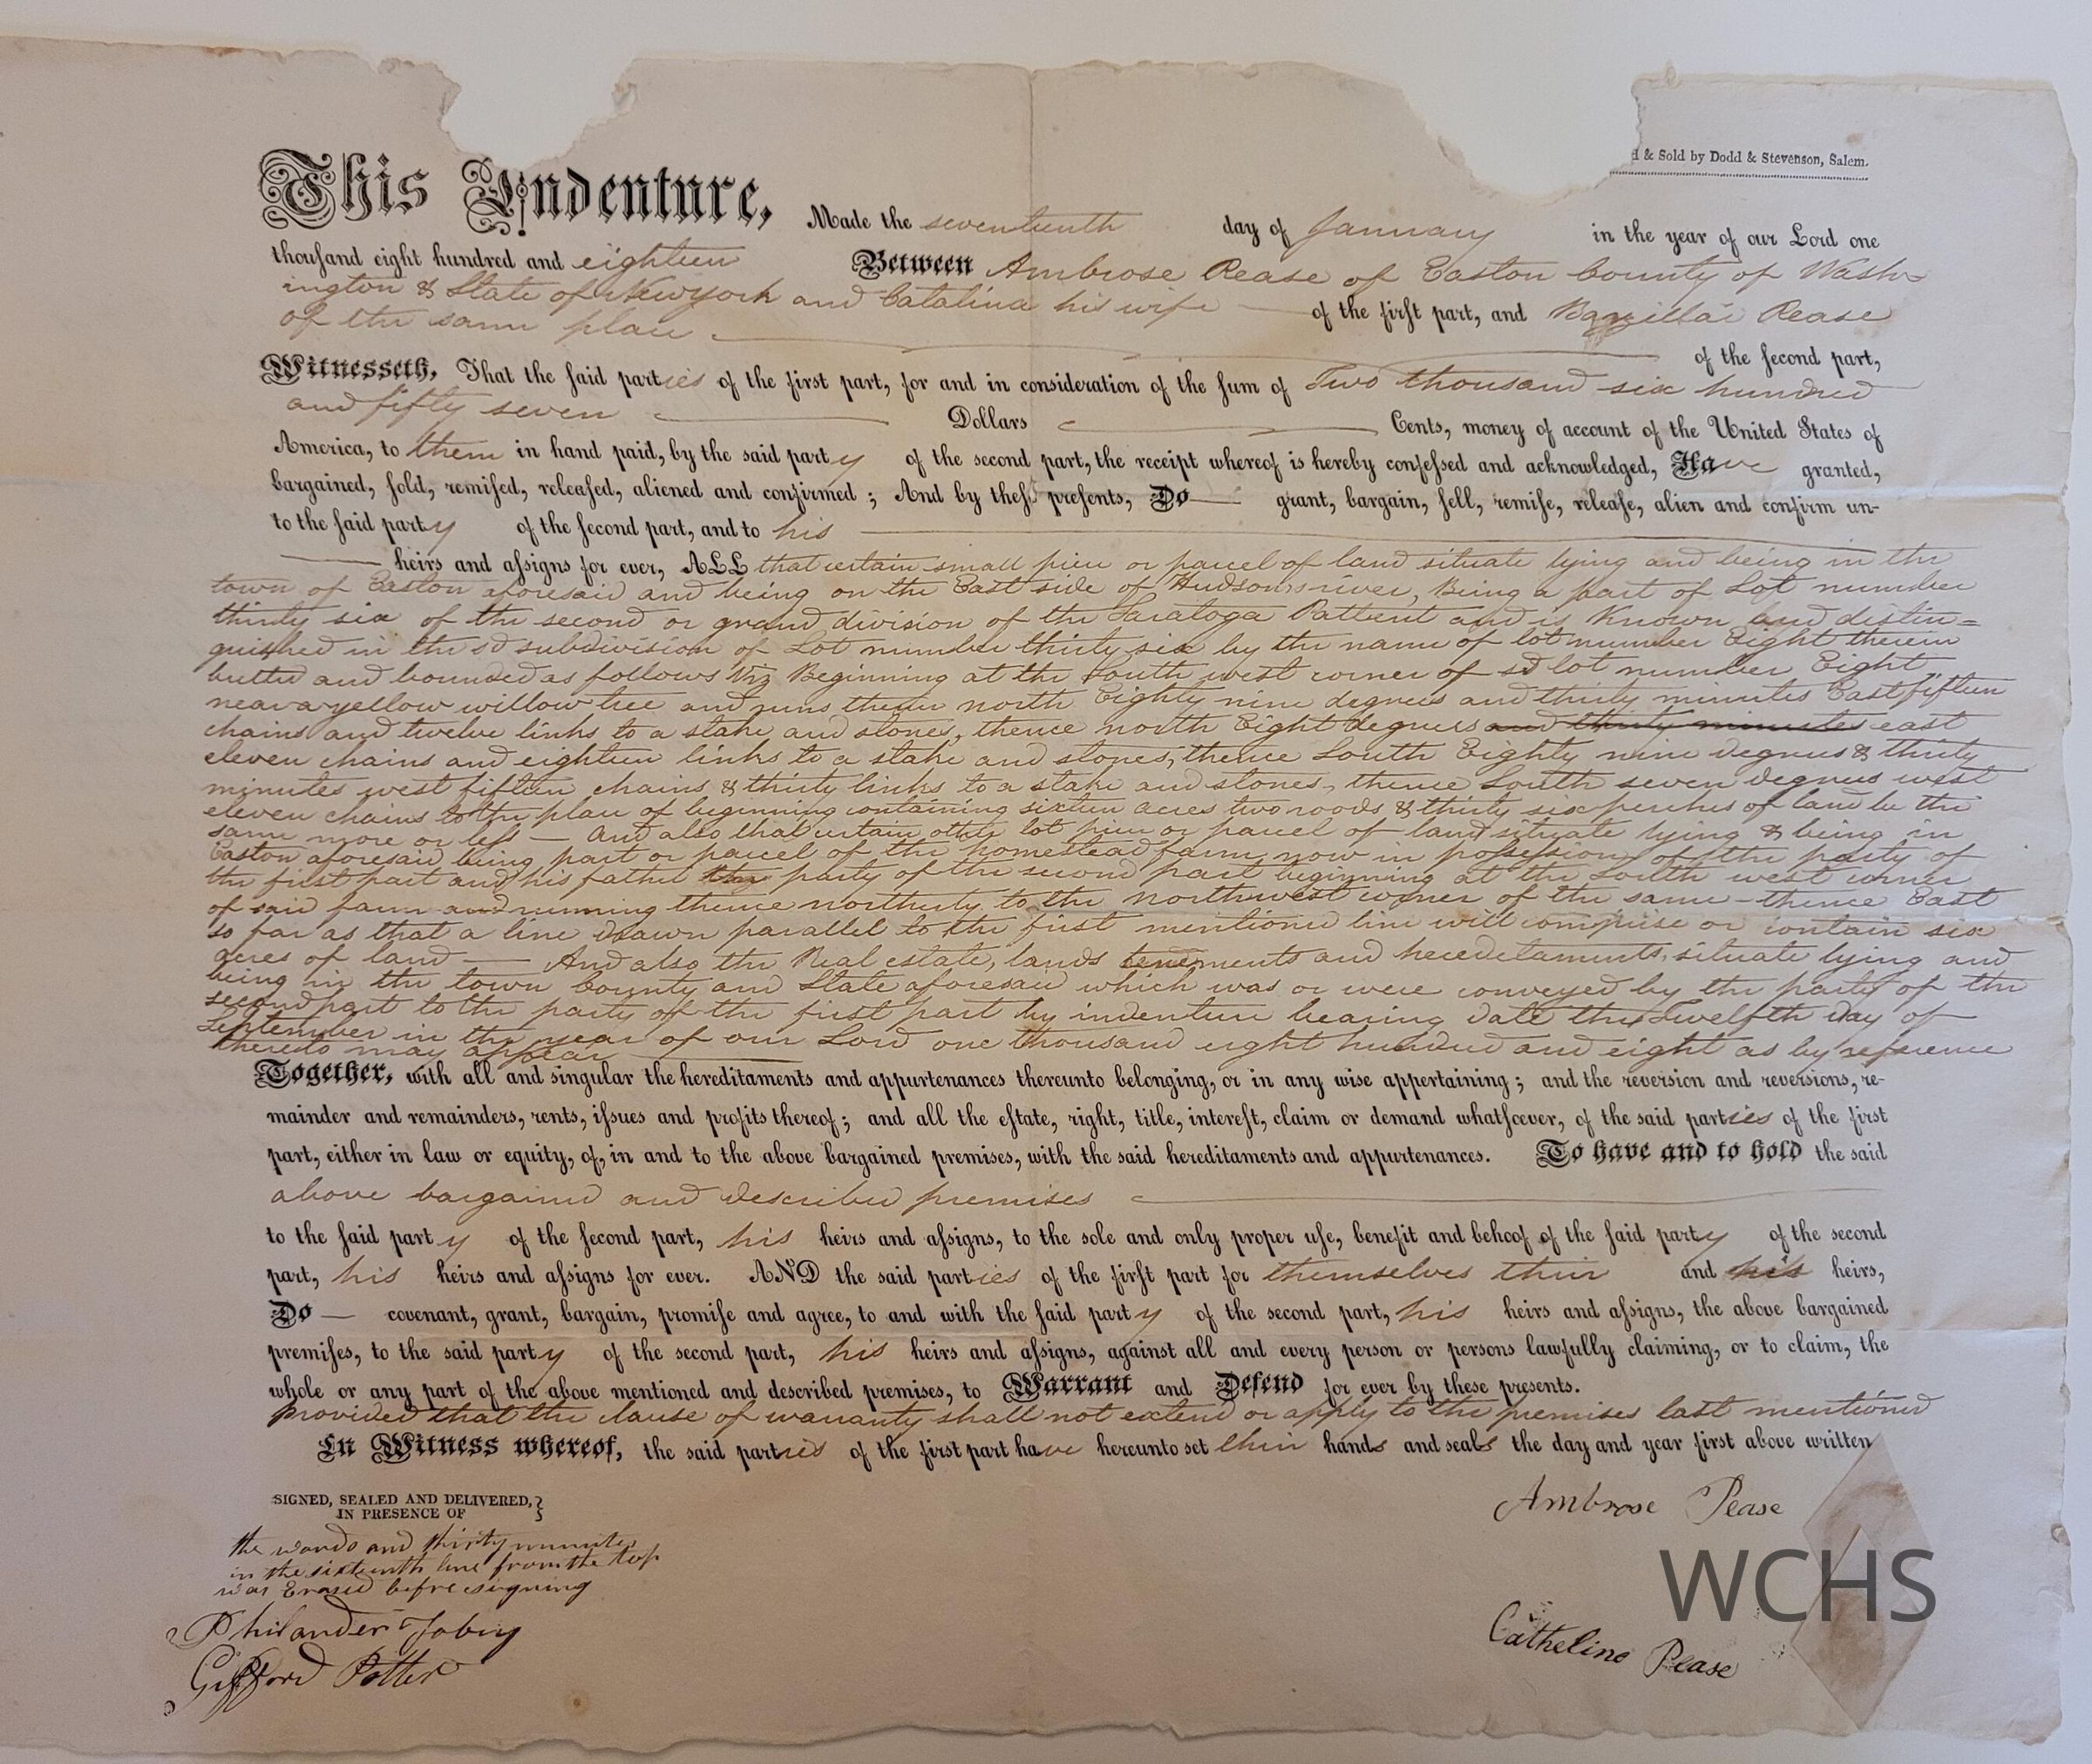 d & Sold by Dodd & Stevenson, Salem.
This Indenture, Made the seventeenth day of January in the year of our Lord one
thouſand eight hundred and eighteen Between Ambrose Pease of Easton County of Wash=
ington & State of Newyork and Catalina his wife of the firſt part, and Pease
of the same place of the ſecond part,
Witnesseth, That the ſaid parties of the firſt part, for and in conſideration of the ſum of Two thousand six hundred
and fifty seven Dollars Cents, money of account of the United States of
America, to them in hand paid, by the said party of the second part, the receipt whereof is hereby confeſsed and acknowledged, Have granted,
bargained, ſold, remiſed, releaſed, aliened and confirmed; And by theſe preſents, Do grant, bargain, ſell, remiſe, releaſe, alien and confirm un-
to the ſaid party of the ſecond part, and to his
heirs and aſsigns for ever, ALL that certain small piece or parcel of land situate lying and being in the
town of Easton aforesaid and being on the East side of Hudsons river, Being a part of Lot number
thirty six of the second or grand division of the Saratoga Pattent and is Known and distin=
guished in the sd subdivision of Lot number thirty six by the name of lot number Eight therein
butted and bounded as follows Viz Beginning at the South west corner of sd lot number Eight
near a yellow willow tree and runs thence north Eighty nine degrees and thirty minutes East fifteen
chains and twelve links to a stake and stones, thence north Eight degrees and thirty minutes east
eleven chains and eighteen links to a stake and stones, thence South Eighty nine degrees & thirty
minutes west fifteen chains & thirty links to a stake and stones, thence South seven degrees west
eleven chains to the place of beginning containing sixteen acres two roods & thirty six perches of land be the
same more or leſs — And also that certain other lot piece or parcel of land situate lying & being in
Easton aforesaid being part or parcel of the homestead farm now in poſseſsion of the party of
the first part and his father the party of the second part beginning at the South west corner
of said farm and running thence northerly to the northwest corner of the same - thence East
so far as that a line drawn parallel to the first mentioned line will comprise or contain six
acres of land — And also the Real estate, lands tenements and heredetaments, situate lying and
being in the town County and State aforesaid which was or were conveyed by the party of the
second part to the party of the first part by indenture bearing date the Twelfth day of
September in the year of our Lord one thousand eight hundred and eight as by reference
thereto may appear
Together, with all and singular the hereditaments and appurtenances thereunto belonging, or in any wise appertaining; and the reversion and reversions, re-
mainder and remainders, rents, iſsues and profits thereof; and all the eſtate, right, title, intereſt, claim or demand whatſoever, of the said parties of the firſt
part, either in law or equity, of, in and to the above bargained premises, with the said hereditaments and appurtenances. To have and to hold the said
above bargained and described premises
to the ſaid party of the ſecond part, his heirs and aſsigns, to the sole and only proper uſe, benefit and behoof of the ſaid party of the second
part, his heirs and aſsigns for ever. AND the said parties of the firſt part for themselves their and his heirs,
Do — covenant, grant, bargain, promiſe and agree, to and with the ſaid party of the second part, his heirs and aſsigns, the above bargained
premiſes, to the said party of the second part, his heirs and aſsigns, against all and every person or persons lawfully claiming, or to claim, the
whole or any part of the above mentioned and described premises, to Warrant and Defend for ever by these presents.
provided that the clause of warranty shall not extend or apply to the premises last mentioned
In Witness whereof, the said parties of the first part have hereunto set their hands and seals the day and year first above written
SIGNED, SEALED AND DELIVERED,
IN PRESENCE OF
the words and thirty minutes
in the sixteenth line from the top
was Erased before signing
Philander Tobey
Gifford Potter
Ambrose Pease
Catheline Pease
WCHS